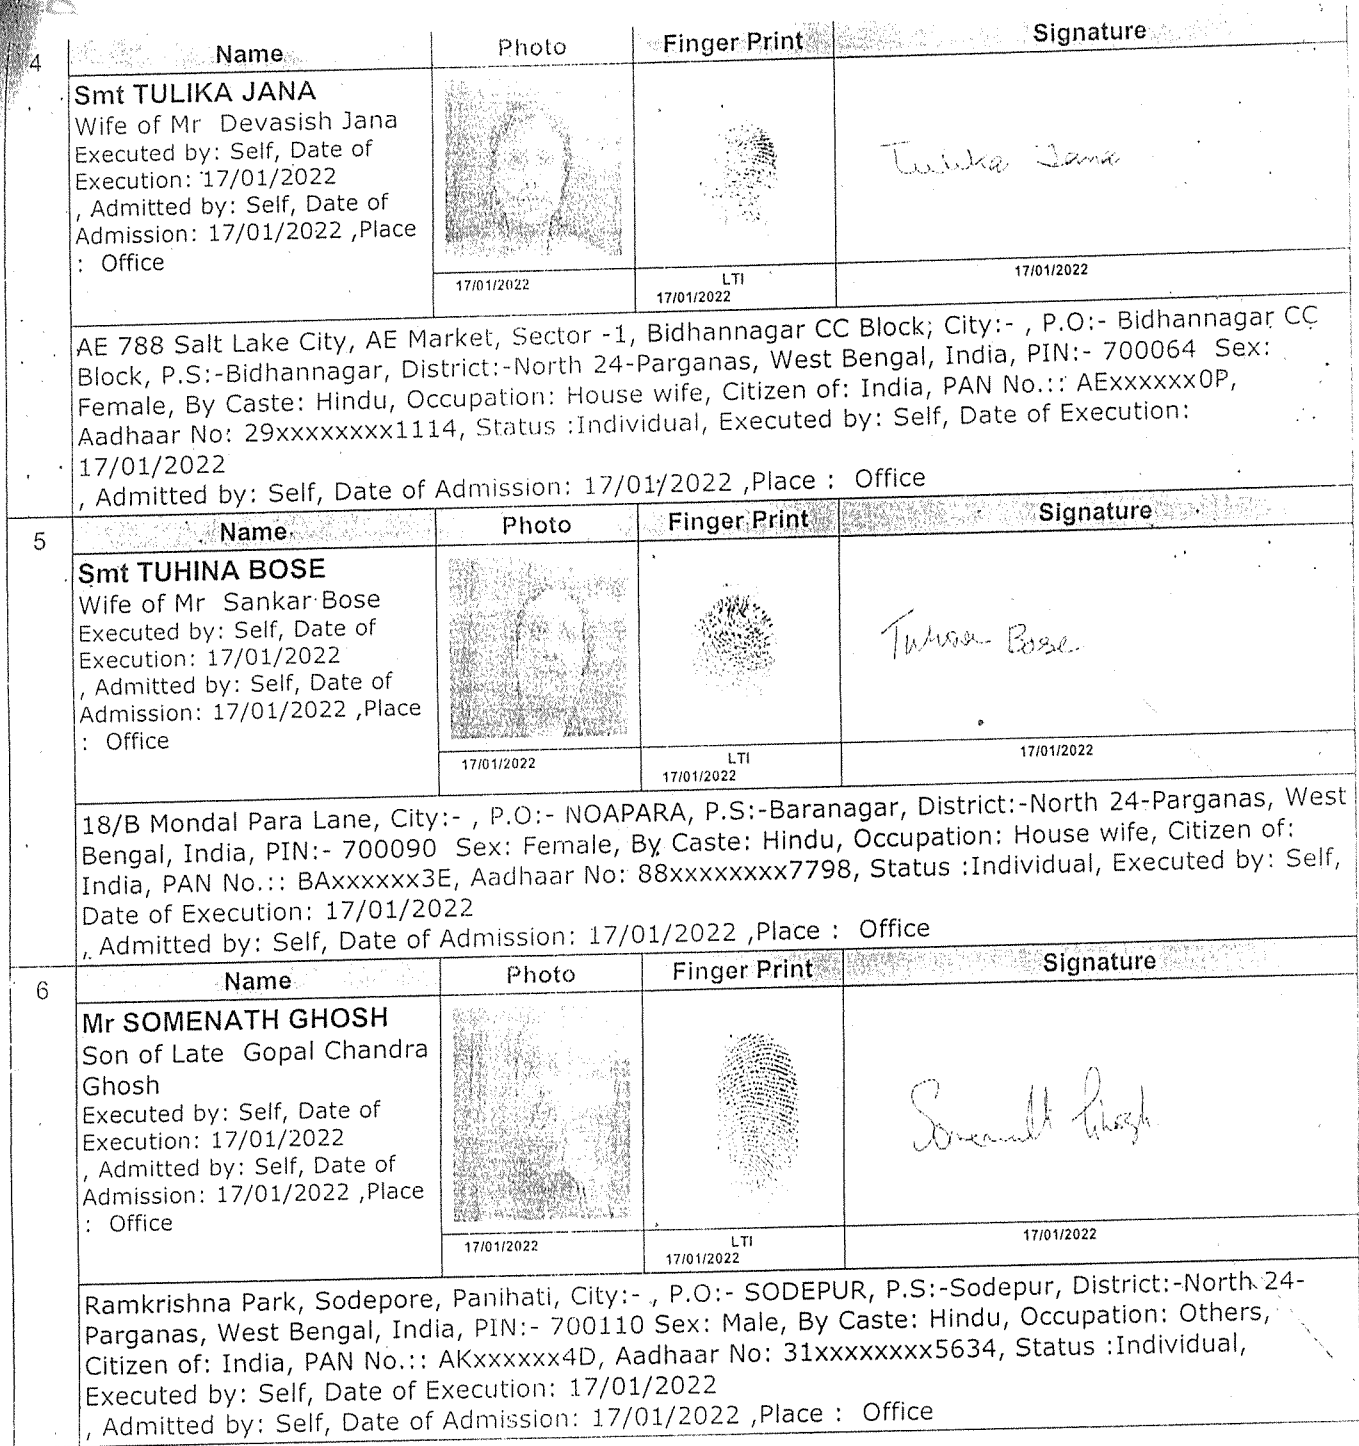 4
Name Photo Finger Print Signature
Smt TULIKA JANA
Wife of Mr Devasish Jana
Executed by: Self, Date of
Execution: 17/01/2022
, Admitted by: Self, Date of
Admission: 17/01/2022 ,Place
: Office
Tulika Jana
17/01/2022
LTI
17/01/2022
17/01/2022
AE 788 Salt Lake City, AE Market, Sector -1, Bidhannagar CC Block; City:- , P.O:- Bidhannagar CC
Block, P.S:-Bidhannagar, District:-North 24-Parganas, West Bengal, India, PIN:- 700064 Sex:
Female, By Caste: Hindu, Occupation: House wife, Citizen of: India, PAN No.:: AExxxxxx0P,
Aadhaar No: 29xxxxxxxx1114, Status :Individual, Executed by: Self, Date of Execution:
17/01/2022
, Admitted by: Self, Date of Admission: 17/01/2022 ,Place : Office
5
Name Photo Finger Print Signature
Smt TUHINA BOSE
Wife of Mr Sankar Bose
Executed by: Self, Date of
Execution: 17/01/2022
, Admitted by: Self, Date of
Admission: 17/01/2022 ,Place
: Office
Tuhina Bose
17/01/2022
LTI
17/01/2022
17/01/2022
18/B Mondal Para Lane, City:- , P.O:- NOAPARA, P.S:-Baranagar, District:-North 24-Parganas, West
Bengal, India, PIN:- 700090 Sex: Female, By Caste: Hindu, Occupation: House wife, Citizen of:
India, PAN No.:: BAxxxxxx3E, Aadhaar No: 88xxxxxxxx7798, Status :Individual, Executed by: Self,
Date of Execution: 17/01/2022
, Admitted by: Self, Date of Admission: 17/01/2022 ,Place : Office
6
Name Photo Finger Print Signature
Mr SOMENATH GHOSH
Son of Late Gopal Chandra
Ghosh
Executed by: Self, Date of
Execution: 17/01/2022
, Admitted by: Self, Date of
Admission: 17/01/2022 ,Place
: Office
Somenath Ghosh
17/01/2022
LTI
17/01/2022
17/01/2022
Ramkrishna Park, Sodepore, Panihati, City:- , P.O:- SODEPUR, P.S:-Sodepur, District:-North 24-
Parganas, West Bengal, India, PIN:- 700110 Sex: Male, By Caste: Hindu, Occupation: Others,
Citizen of: India, PAN No.:: AKxxxxxx4D, Aadhaar No: 31xxxxxxxx5634, Status :Individual,
Executed by: Self, Date of Execution: 17/01/2022
, Admitted by: Self, Date of Admission: 17/01/2022 ,Place : Office